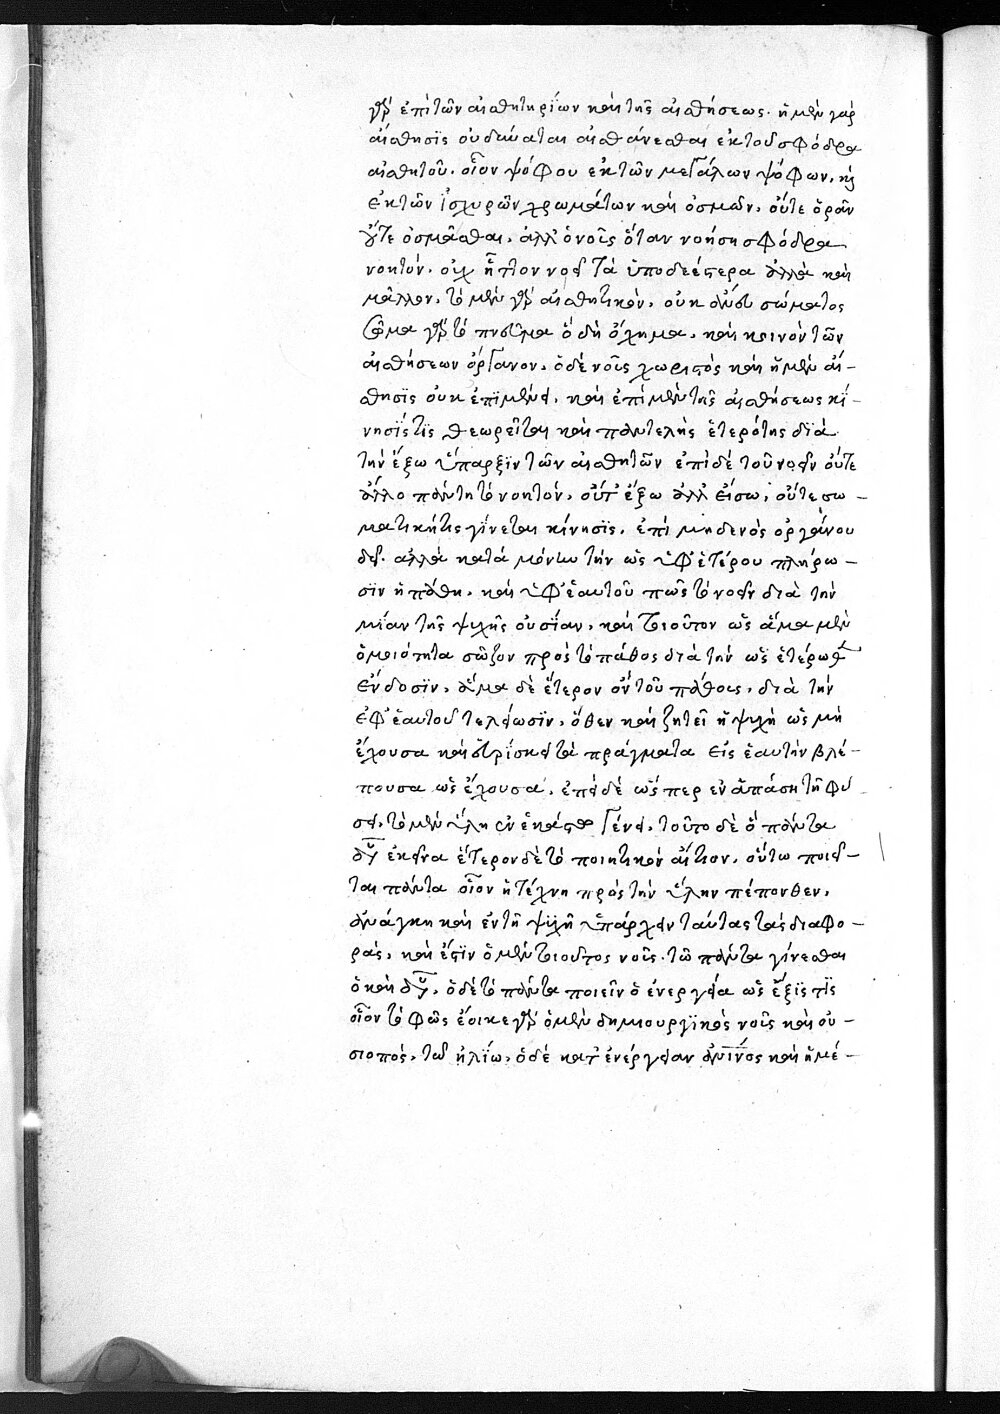 γὰρ ἐπὶ τῶν αἰσθητηρίων καὶ τῆς αἰσθήσεως. ἡ μὲν γὰρ
αἴσθησϊς οὐ δύναται αἰσθάνεσθαι ἐκ τοῦ σφόδρα
αἰσθητοῦ. οἷον ψόφου ἐκ τῶν μεγάλων ψόφων, καὶ
ἐκ τῶν ἰσχυρῶν χρωμάτων καὶ ὀσμῶν, οὔτε ὁρᾶν
οὔτε ὀσμᾶσθαι, ἀλλ' ὁ νοῦς ὅταν νοήσῃ σφόδρα
νοητόν. οὐχ ἧττον νοεῖ τὰ ὑποδεέστερα ἀλλὰ καὶ
μᾶλλον, τὸ μὲν γὰρ αἰσθητικὸν, οὐκ ἄνευ σώματος
σῶμα γὰρ τὸ πνεῦμα ὃ δὴ ὄχημα, καὶ κοινὸν τῶν
αἰσθήσεων ὄργανον. ὁ δὲ νοῦς χωριστὸς καὶ ἡ μὲν αἴ-
σθησϊς οὐκ ἐπϊμένει. καὶ ἐπὶ μὲν τῆς αἰσθήσεως κί-
νησίς τϊς θεωρεῖται καὶ παντελὴς ἑτερότης διὰ
τὴν ἔξω ὕπαρξϊν τῶν αἰσθητῶν ἐπὶ δὲ τοῦ νοεῖν οὔτε
ἄλλο πάντῃ τὸ νοητόν, οὔτ' ἔξω ἀλλ' εἴσω, οὔτε σω-
ματική τις γίνεται κίνησϊς, ἐπὶ μηδενὸς ὀργάνου
δεῖ. ἀλλὰ κατὰ μόνην τὴν ὡς ὑφ' ἑτέρου πλήρω-
σϊν ἢ πάθη, καὶ ὑφ' ἑαυτοῦ πως τὸ νοεῖν διὰ τὴν
μίαν τῆς ψυχῆς οὐσίαν, καὶ τοιοῦτον ὡς ἅμα μὲν
ὁμοιότητα σῶζον πρὸς τὸ πάθος διὰ τὴν ὡς ἑτέρωθεν
ἔνδοσϊν, ἅμα δὲ ἕτερον ὂν τοῦ πάθους, διὰ τὴν
ἐφ' ἑαυτοῦ τελείωσϊν, ὅθεν καὶ ζητεῖ ἡ ψυχὴ ὡς μὴ
ἔχουσα καὶ εὑρίσκει τὰ πράγματα εἰς ἑαυτὴν βλέ-
πουσα ὡς ἔχουσα, ἐπεὶ δὲ ὥσπερ ἐν ἁπάσῃ τῇ φύ
σει, τὸ μὲν ὕλη ἐν ἑκάστῳ γένει, τοῦτο δὲ ὃ πάντα
δυνάμει ἐκεῖνα ἕτερον δὲ τὸ ποιητικὸν αἴτιον, οὕτω ποιεῖ-
ται πάντα οἷον ἡ τέχνη πρὸς τὴν ὕλην πέπονθεν,
ἀνάγκη καὶ ἐν τῇ ψυχῇ ὑπάρχειν ταύτας τὰς διαφο-
ράς, καὶ ἔστϊν ὁ μὲν τοιοῦτος νοῦς. τῷ πάντα γίνεσθαι
ὁ καὶ δυνάμει, ὁ δὲ τὸ πάντα ποιεῖν ὁ ἐνεργείᾳ ὡς ἕξϊς τϊς
οἷον τὸ φῶς ἔοικε γὰρ ὁ μὲν δημιουργϊκὸς νοῦς καὶ οὐ-
σιοποιὸς, τῷ ἡλίῳ, ὁ δὲ κατ' ἐνέργειαν καὶ ἡμέ-